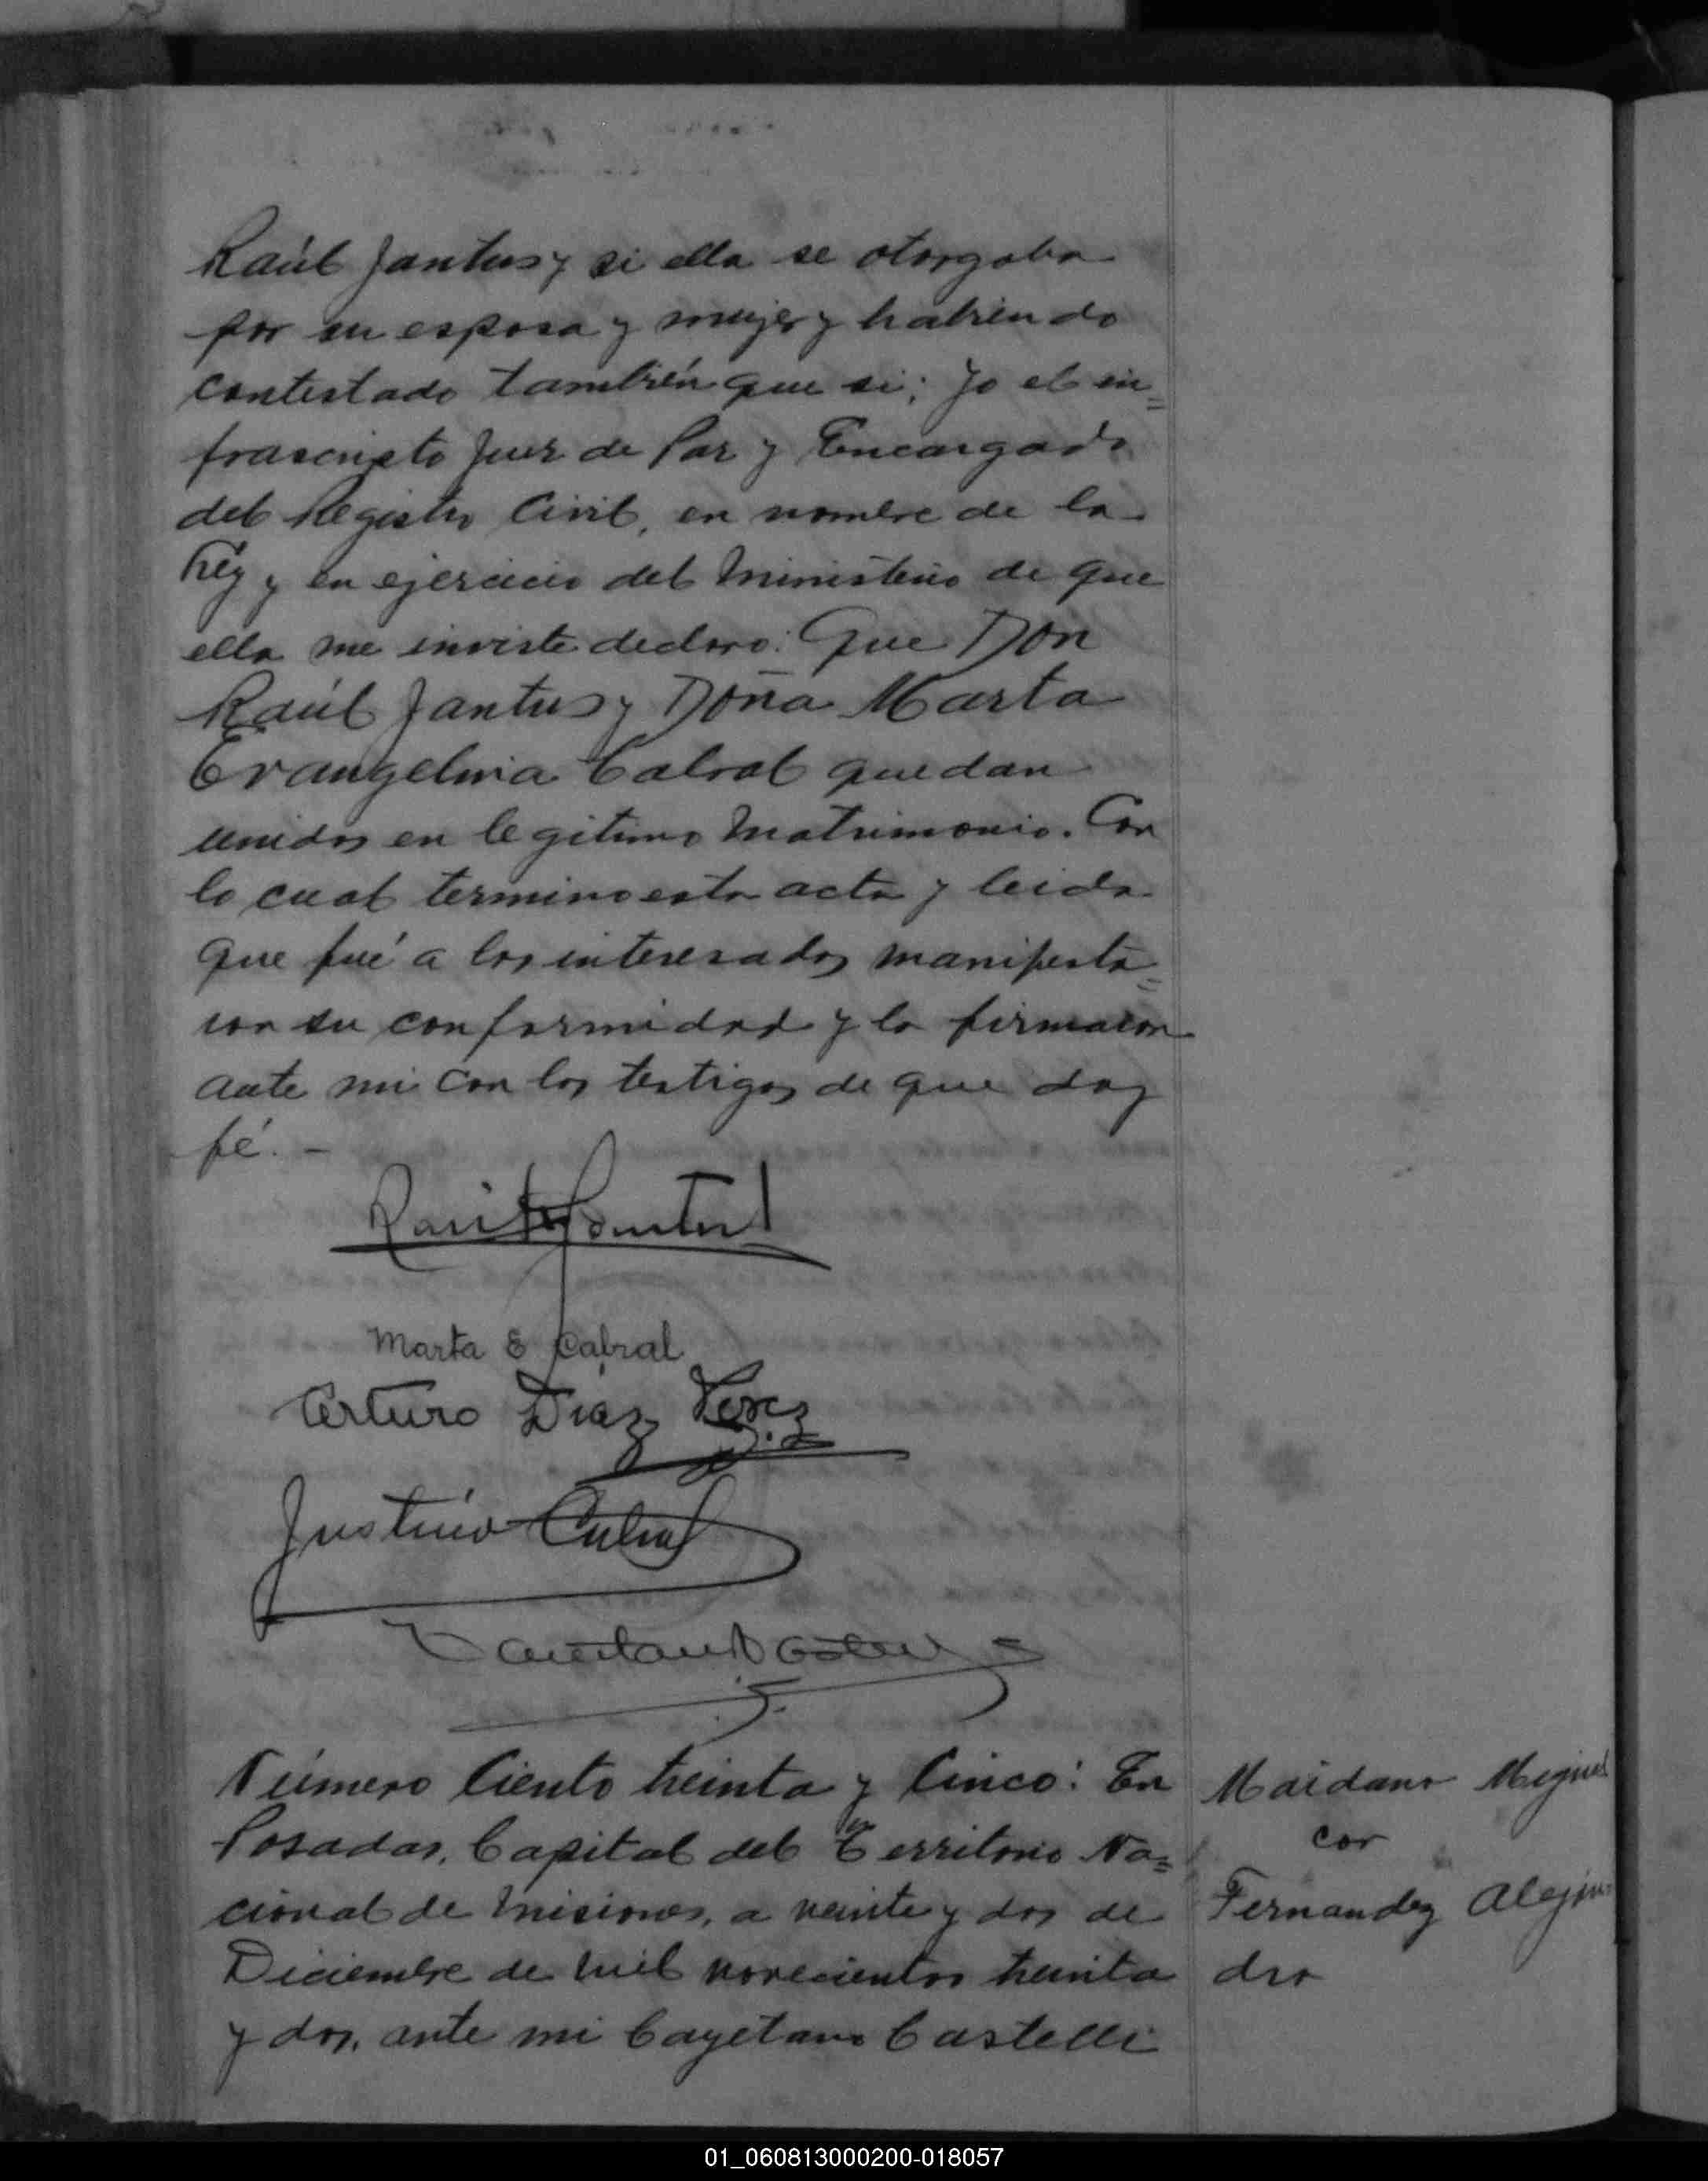 Raúl Jantus y si ella se otorgaba
por su esposa y mujer y habiendo
contestado también que si; Yo el in=
frascripto Juez de Paz y Encargado
del Registro Civil, en nombre de la
Ley y en ejercicio del Ministerio de que
ella me inviste declaro: Que Don
Raúl Jantus y Doña Marta
Evangelina Cabral quedan
unidos en legitimo Matrimonio. Con
lo cual termino esta acta y leida
que fué a los interesados manifesta=
ron su conformidad y la firmaron
ante mi con los testigos de que doy
fé. —
Raúl Jantus
Marta E Cabral
Arturo Díaz Perez
Justino Cabral
Número Ciento treinta y Cinco: En
Posadas, Capital del Territorio Na=
cional de Misiones, a veinte y dos de
Diciembre de mil novecientos treinta
y dos, ante mi Cayetano Castelli
Maidana Miguel
con
Fernandez Alejan
dra
01_060813000200-018057